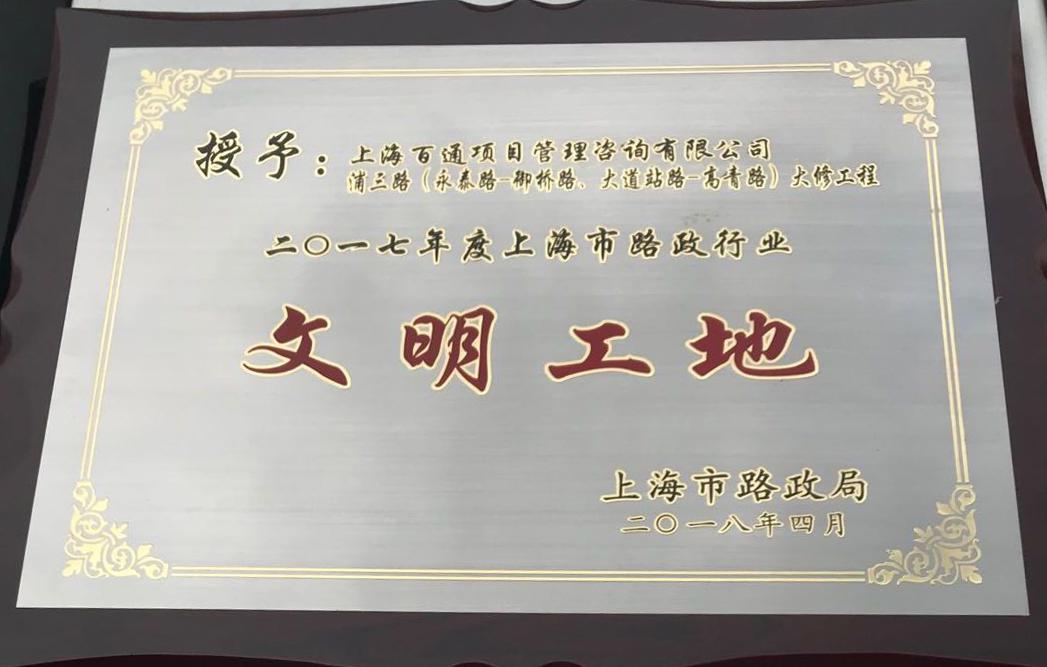 授予：上海百通项目管理咨询有限公司
浦三路（永泰路-御桥路、大道站路-高青路）大修工程
二〇一七年度上海市路政行业
文明工地
上海市路政局
二〇一八年四月